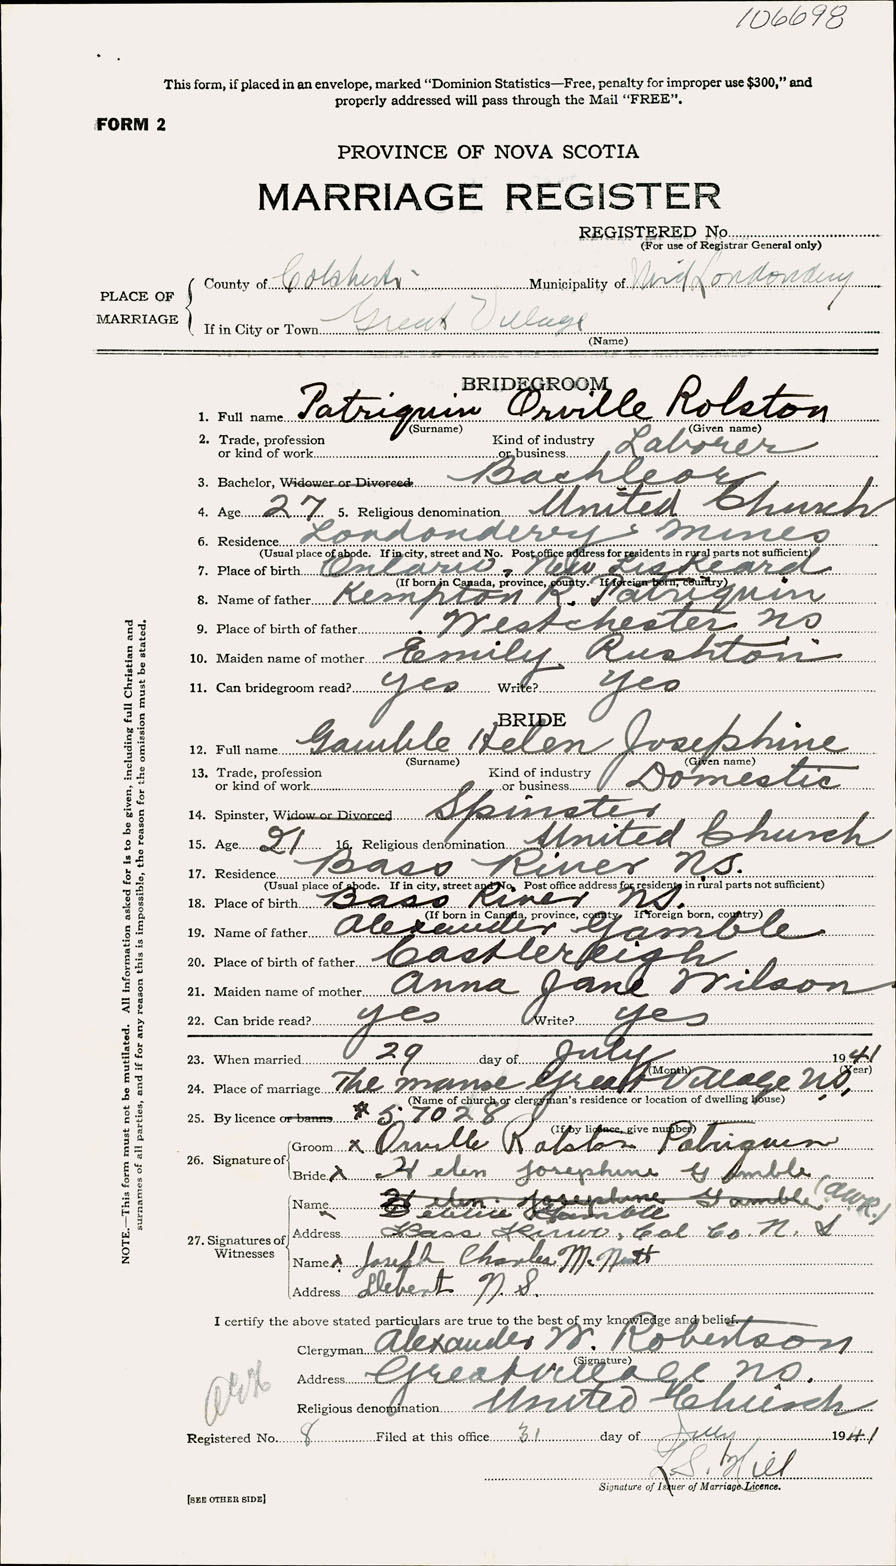 106698
This form, if placed in an envelope, marked “Dominion Statistics—Free, penalty for improper use $300,” and
properly addressed will pass through the Mail “FREE”.
FORM 2
PROVINCE OF NOVA SCOTIA
MARRIAGE REGISTER
REGISTERED No.
(For use of Registrar General only)
PLACE OF MARRIAGE
County of Colchester Municipality of West Londonderry
If in City or Town Great Village
(Name)
BRIDEGROOM
1. Full name Patriquin Orville Rolston
(Surname) (Given name)
2. Trade, profession or kind of work Kind of industry or business Laborer
3. Bachelor, Widower or Divorced Bachleor
4. Age 27 5. Religious denomination United Church
6. Residence Londonderry Mines
(Usual place of abode. If in city, street and No. Post office address for residents in rural parts not sufficient)
7. Place of birth Ontario, New Liskeard
(If born in Canada, province, county. If foreign born, country)
8. Name of father Kempton R. Patriquin
9. Place of birth of father Westchester NS
10. Maiden name of mother Emily Rushton
11. Can bridegroom read? yes Write? yes
BRIDE
12. Full name Gamble Helen Josephine
(Surname) (Given name)
13. Trade, profession or kind of work Kind of industry or business Domestic
14. Spinster, Widow or Divorced Spinster
15. Age 21 16. Religious denomination United Church
17. Residence Bass River N.S.
(Usual place of abode. If in city, street and No. Post office address for residents in rural parts not sufficient)
18. Place of birth Bass River N.S.
(If born in Canada, province, county. If foreign born, country)
19. Name of father Alexander Gamble
20. Place of birth of father Castlereigh
21. Maiden name of mother Anna Jane Wilson
22. Can bride read? yes Write? yes
23. When married 29 day of July 1941
(Month) (Year)
24. Place of marriage The manse Great Village N.S.
(Name of church or clergyman's residence or location of dwelling house)
25. By licence or banns # 57028
(If by licence, give number)
26. Signature of Groom x Orville Rolston Patriquin
Bride x Helen Josephine Gamble
27. Signatures of Witnesses
Name Helen Josephine Gamble (AWR.)
Gamble
Address Bass River, Col Co. N. S
Name x Joseph Charles McNutt
Address Debert N. S.
I certify the above stated particulars are true to the best of my knowledge and belief.
Clergyman Alexander W. Robertson
(Signature)
Address Great Village N.S.
Religious denomination United Church
Registered No. 8 Filed at this office 31 day of July 1941
L.S. Hill
Signature of Issuer of Marriage Licence.
[SEE OTHER SIDE]
NOTE.—This form must not be mutilated. All information asked for is to be given, including full Christian and
surnames of all parties, and if for any reason this is impossible, the reason for the omission must be stated.